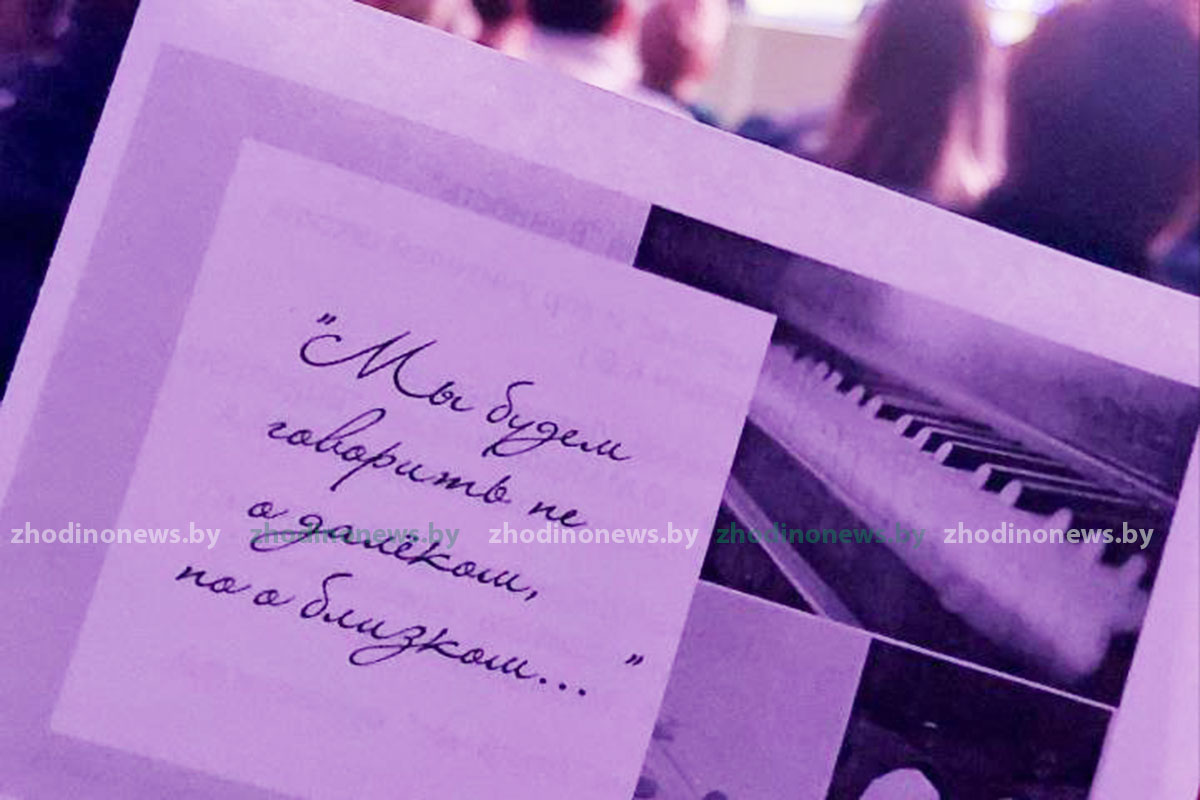 "Мы будем
говорить не
о далёком,
но о близком... "
zhodinonews.by zhodinonews.by zhodinonews.by zhodinonews.by zhodinonews.by